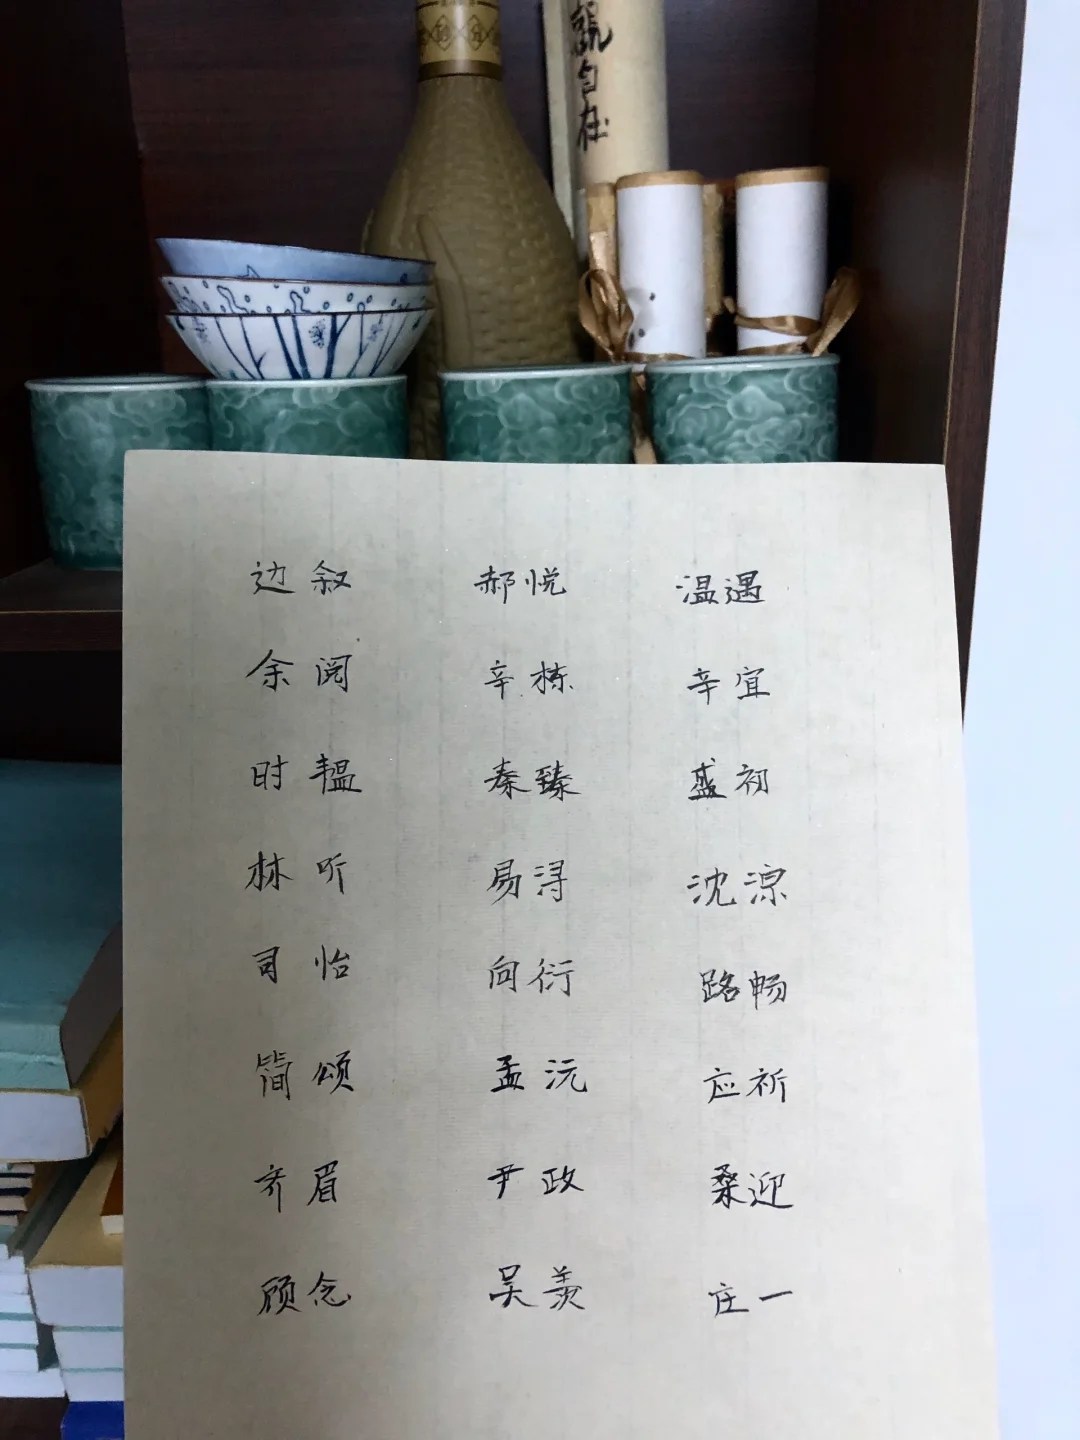 觀自在
边叙 郝悦 温遇
余阅 辛栋 辛宜
时韫 秦臻 盛初
林听 易浔 沈凉
司怡 向衍 路畅
简颂 孟沅 应祈
齐眉 尹政 桑迎
顾念 吴羡 庄一